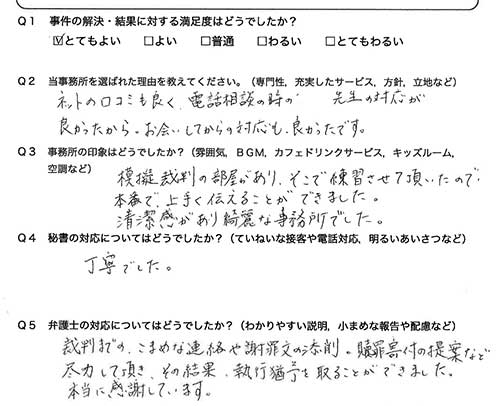 Q1 事件の解決・結果に対する満足度はどうでしたか?
☑とてもよい □よい □普通 □わるい □とてもわるい
Q2 当事務所を選ばれた理由を教えてください。(専門性，充実したサービス，方針，立地など)
ネットの口コミも良く、電話相談の時の 先生の対応が
良かったから。お会いしてからの対応も、良かったです。
Q3 事務所の印象はどうでしたか?(雰囲気，BGM，カフェドリンクサービス，キッズルーム，
空調など)
模擬裁判の部屋があり、そこで練習させて頂いたので、
本番で、上手く伝えることができました。
清潔感があり綺麗な事務所でした。
Q4 秘書の対応についてはどうでしたか?(ていねいな接客や電話対応，明るいあいさつなど)
丁寧でした。
Q5 弁護士の対応についてはどうでしたか?(わかりやすい説明，小まめな報告や配慮など)
裁判までの、こまめな連絡や謝罪文の添削。贖罪寄付の提案など
尽力して頂き、その結果、執行猶予を取ることができました。
本当に感謝しています。